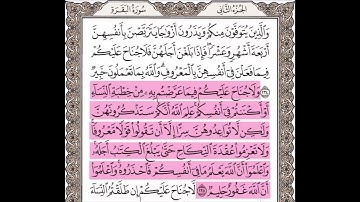 الجزء الثاني سورة البقرة
وَالَّذِينَ يُتَوَفَّوْنَ مِنكُمْ وَيَذَرُونَ أَزْوَاجًا يَتَرَبَّصْنَ بِأَنفُسِهِنَّ
أَرْبَعَةَ أَشْهُرٍ وَعَشْرًا فَإِذَا بَلَغْنَ أَجَلَهُنَّ فَلَا جُنَاحَ عَلَيْكُمْ
فِيمَا فَعَلْنَ فِي أَنفُسِهِنَّ بِالْمَعْرُوفِ وَاللَّهُ بِمَا تَعْمَلُونَ خَبِيرٌ
٢٣٤ وَلَا جُنَاحَ عَلَيْكُمْ فِيمَا عَرَّضْتُم بِهِ مِنْ خِطْبَةِ النِّسَاءِ
أَوْ أَكْنَنتُمْ فِي أَنفُسِكُمْ عَلِمَ اللَّهُ أَنَّكُمْ سَتَذْكُرُونَهُنَّ
وَلَٰكِن لَّا تُوَاعِدُوهُنَّ سِرًّا إِلَّا أَن تَقُولُوا قَوْلًا مَّعْرُوفًا
وَلَا تَعْزِمُوا عُقْدَةَ النِّكَاحِ حَتَّىٰ يَبْلُغَ الْكِتَابُ أَجَلَهُ
وَاعْلَمُوا أَنَّ اللَّهَ يَعْلَمُ مَا فِي أَنفُسِكُمْ فَاحْذَرُوهُ وَاعْلَمُوا
أَنَّ اللَّهَ غَفُورٌ حَلِيمٌ ٢٣٥ لَّا جُنَاحَ عَلَيْكُمْ إِن طَلَّقْتُمُ النِّسَاءَ